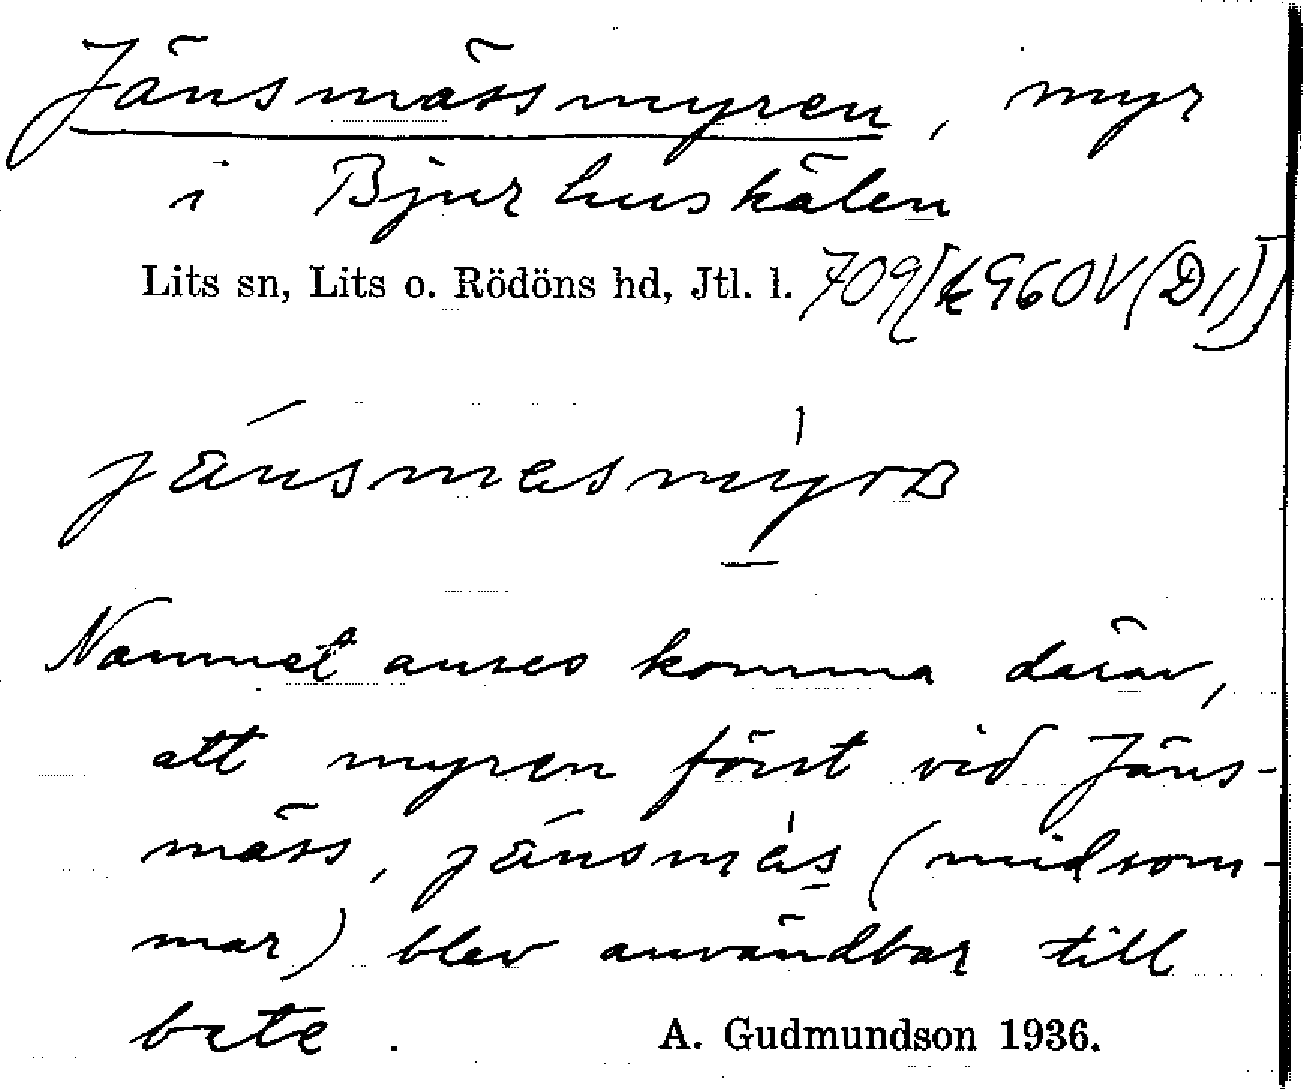 Jänsmässmyren, myr
i Bjurhuskälen
Lits sn, Lits o. Rödöns hd, Jtl. l. 709
Namnet anses komma därav,
att myren först vid Jäns-
mäss, (midsom-
mar) blev användbar till
bete. A. Gudmundson 1936.